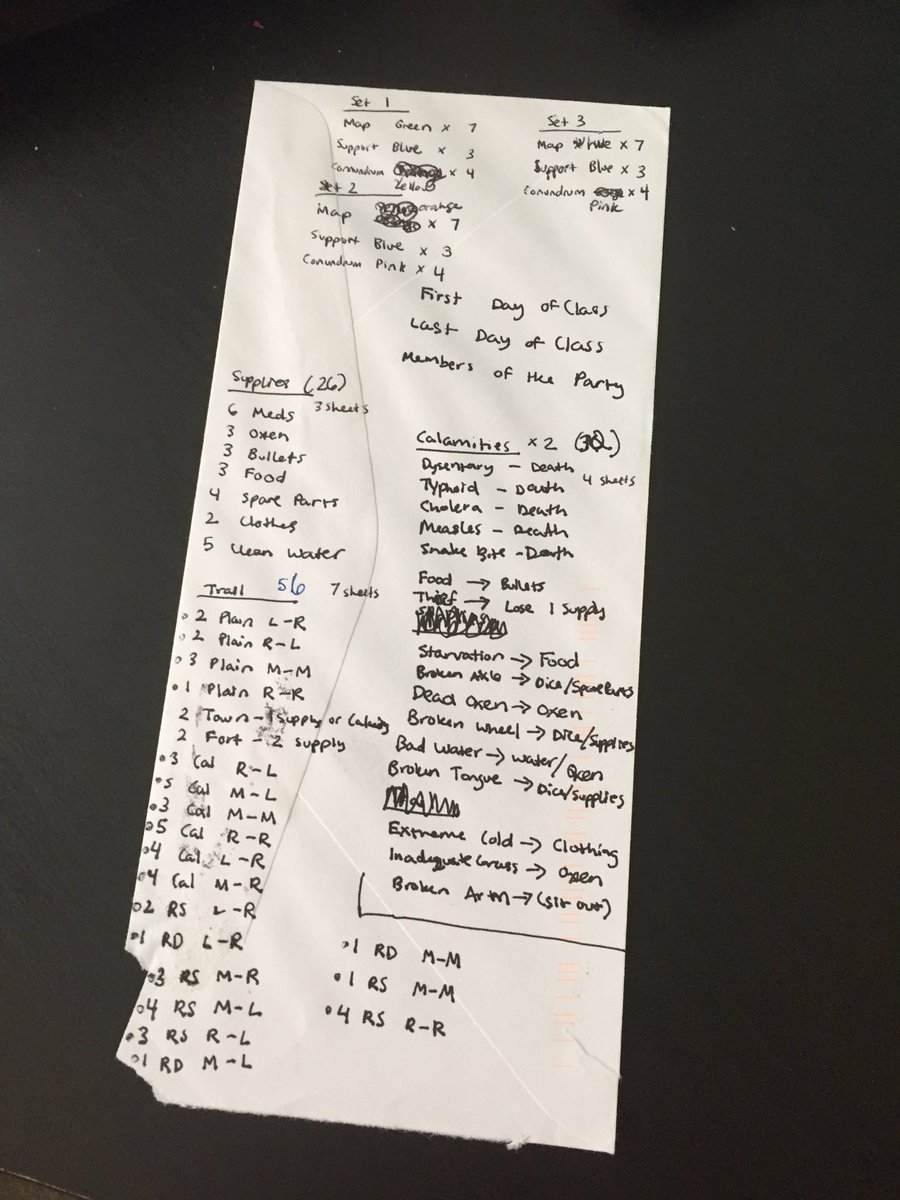 Set 1
Map Green x 7
Support Blue x 3
Conundrum x 4
Yellow
Set 2
Map orange x 7
Support Blue x 3
Conundrum Pink x 4
Set 3
Map White x 7
Support Blue x 3
Conundrum x 4
Pink
First Day of Class
Last Day of Class
Members of the Party
Supplies (26)
3 sheets
6 Meds
3 Oxen
3 Bullets
3 Food
4 Spare Parts
2 Clothes
5 Clean Water
Trail 56 7 sheets
2 Plain L-R
2 Plain R-L
3 Plain M-M
1 Plain R-R
2 Town - 1 Supply or Calamity
2 Fort - 2 supply
3 Cal R-L
5 Cal M-L
3 Cal M-M
5 Cal R-R
4 Cal L-R
4 Cal M-R
2 RS L-R
1 RD L-R
3 RS M-R
4 RS M-L
3 RS R-L
1 RD M-L
Calamities x 2
4 sheets
Dysentary - Death
Typhoid - Death
Cholera - Death
Measles - Death
Snake Bite - Death
Food → Bullets
Thief → Lose 1 Supply
Starvation → Food
Broken Axle → Dice/Spare Parts
Dead Oxen → Oxen
Broken Wheel → Dice/Supplies
Bad Water → Water/Oxen
Broken Tongue → Dice/supplies
Extreme Cold → Clothing
Inadequate Grass → Oxen
Broken Arm → (sit out)
1 RD M-M
1 RS M-M
4 RS R-R